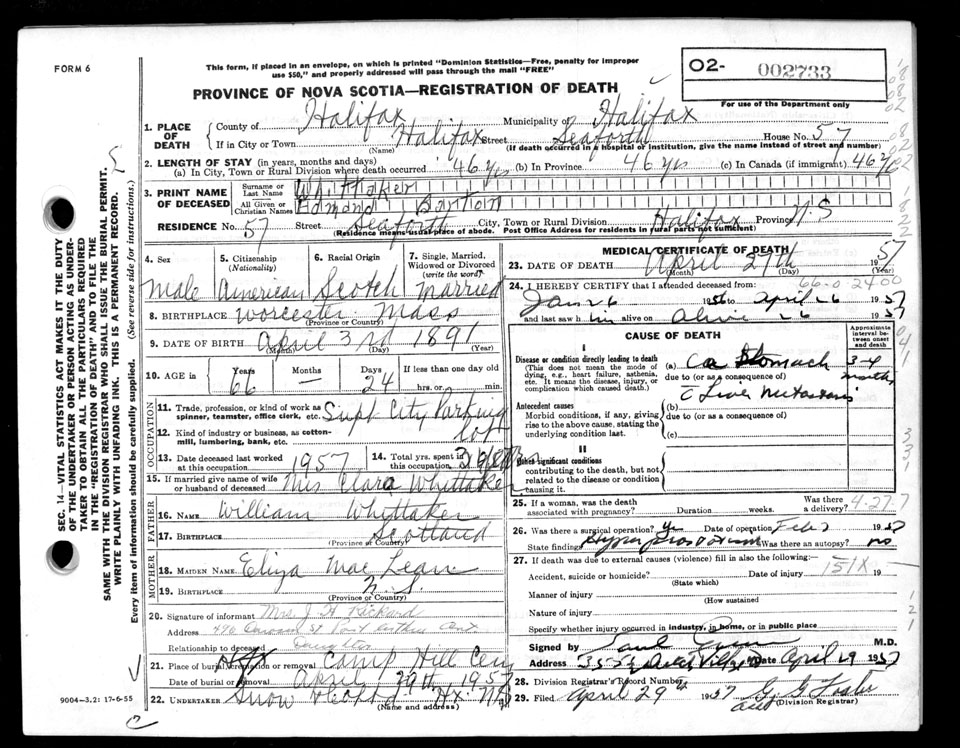 FORM 6
This form, if placed in an envelope, on which is printed "Dominion Statistics—Free, penalty for improper
use $50," and properly addressed will pass through the mail "FREE"
O2- 002733
For use of the Department only
PROVINCE OF NOVA SCOTIA—REGISTRATION OF DEATH
1. PLACE OF DEATH
County of Halifax Municipality of Halifax
If in City or Town Halifax Street Seaforth House No. 57
(Name) (If death occurred in a hospital or institution, give the name instead of street and number)
2. LENGTH OF STAY (in years, months and days)
(a) In City, Town or Rural Division where death occurred 46 yrs (b) In Province 46 yrs (c) In Canada (if immigrant) 46 yrs
3. PRINT NAME OF DECEASED
Surname or Last Name Whittaker
All Given or Christian Names Edmond Barton
RESIDENCE No. 57 Street Seaforth City, Town or Rural Division Halifax Province N.S
(Residence means usual place of abode. Post Office Address for residents in rural parts not sufficient)
4. Sex
male
5. Citizenship (Nationality)
American
6. Racial Origin
Scotch
7. Single, Married, Widowed or Divorced (write the word)
Married
8. BIRTHPLACE Worcester Mass
(Province or Country)
9. DATE OF BIRTH April 3rd 1891
(Month) (Day) (Year)
10. AGE in Years Months Days If less than one day old
66 — 24 hrs. or min.
OCCUPATION
11. Trade, profession, or kind of work as spinner, teamster, office clerk, etc. Supt City Parking
12. Kind of industry or business, as cotton-mill, lumbering, bank, etc. Lots
13. Date deceased last worked at this occupation 1957
14. Total yrs. spent in this occupation
15. If married give name of wife or husband of deceased Mrs Clara Whittaker
FATHER
16. NAME William Whittaker
17. BIRTHPLACE Scotland
(Province or Country)
MOTHER
18. MAIDEN NAME Eliza Mac Lean
19. BIRTHPLACE N.S.
(Province or Country)
20. Signature of informant Mrs J H Rickard
Address 490 St Port Ont
Relationship to deceased Daughter
21. Place of burial, cremation or removal Camp Hill Cem
Date of burial or removal April 29th 1957
22. UNDERTAKER Snow Hx. N.S
(Name and address)
MEDICAL CERTIFICATE OF DEATH
23. DATE OF DEATH April 27th 1957
(Month) (Day) (Year)
66-0 2400
24. I HEREBY CERTIFY that I attended deceased from:
Jan 26 1956 to April 26 1957
and last saw him alive on 26 1957
CAUSE OF DEATH
Approximate interval between onset and death
I
Disease or condition directly leading to death
(This does not mean the mode of dying, e.g., heart failure, asthenia, etc. It means the disease, injury, or complication which caused death.)
(a) Ca Stomach 3-4 months
due to (or as a consequence of)
c̄ Liver Metastasis
Antecedent causes
Morbid conditions, if any, giving rise to the above cause, stating the underlying condition last.
(b)
due to (or as a consequence of)
(c)
II
Other significant conditions
contributing to the death, but not related to the disease or condition causing it.
25. If a woman, was the death associated with pregnancy? Duration weeks. Was there a delivery? 4-27-7
26. Was there a surgical operation? Yes Date of operation Feb 1957
State findings Was there an autopsy? no
27. If death was due to external causes (violence) fill in also the following:—
Accident, suicide or homicide? Date of injury 151X 19
(State which)
Manner of injury
(How sustained
Nature of injury
Specify whether injury occurred in industry, in home, or in public place
Signed by M.D.
Address Date April 29 1957
28. Division Registrar's Record Number
29. Filed April 29th 1957
(Division Registrar)
SEC. 14—VITAL STATISTICS ACT MAKES IT THE DUTY
OF THE UNDERTAKER OR PERSON ACTING AS UNDER-
TAKER TO OBTAIN ALL THE PARTICULARS REQUIRED
IN THE "REGISTRATION OF DEATH" AND TO FILE THE
SAME WITH THE DIVISION REGISTRAR WHO SHALL ISSUE THE BURIAL PERMIT.
WRITE PLAINLY WITH UNFADING INK. THIS IS A PERMANENT RECORD.
Every item of information should be carefully supplied. (See reverse side for instructions.)
9004-3.2: 17-6-55